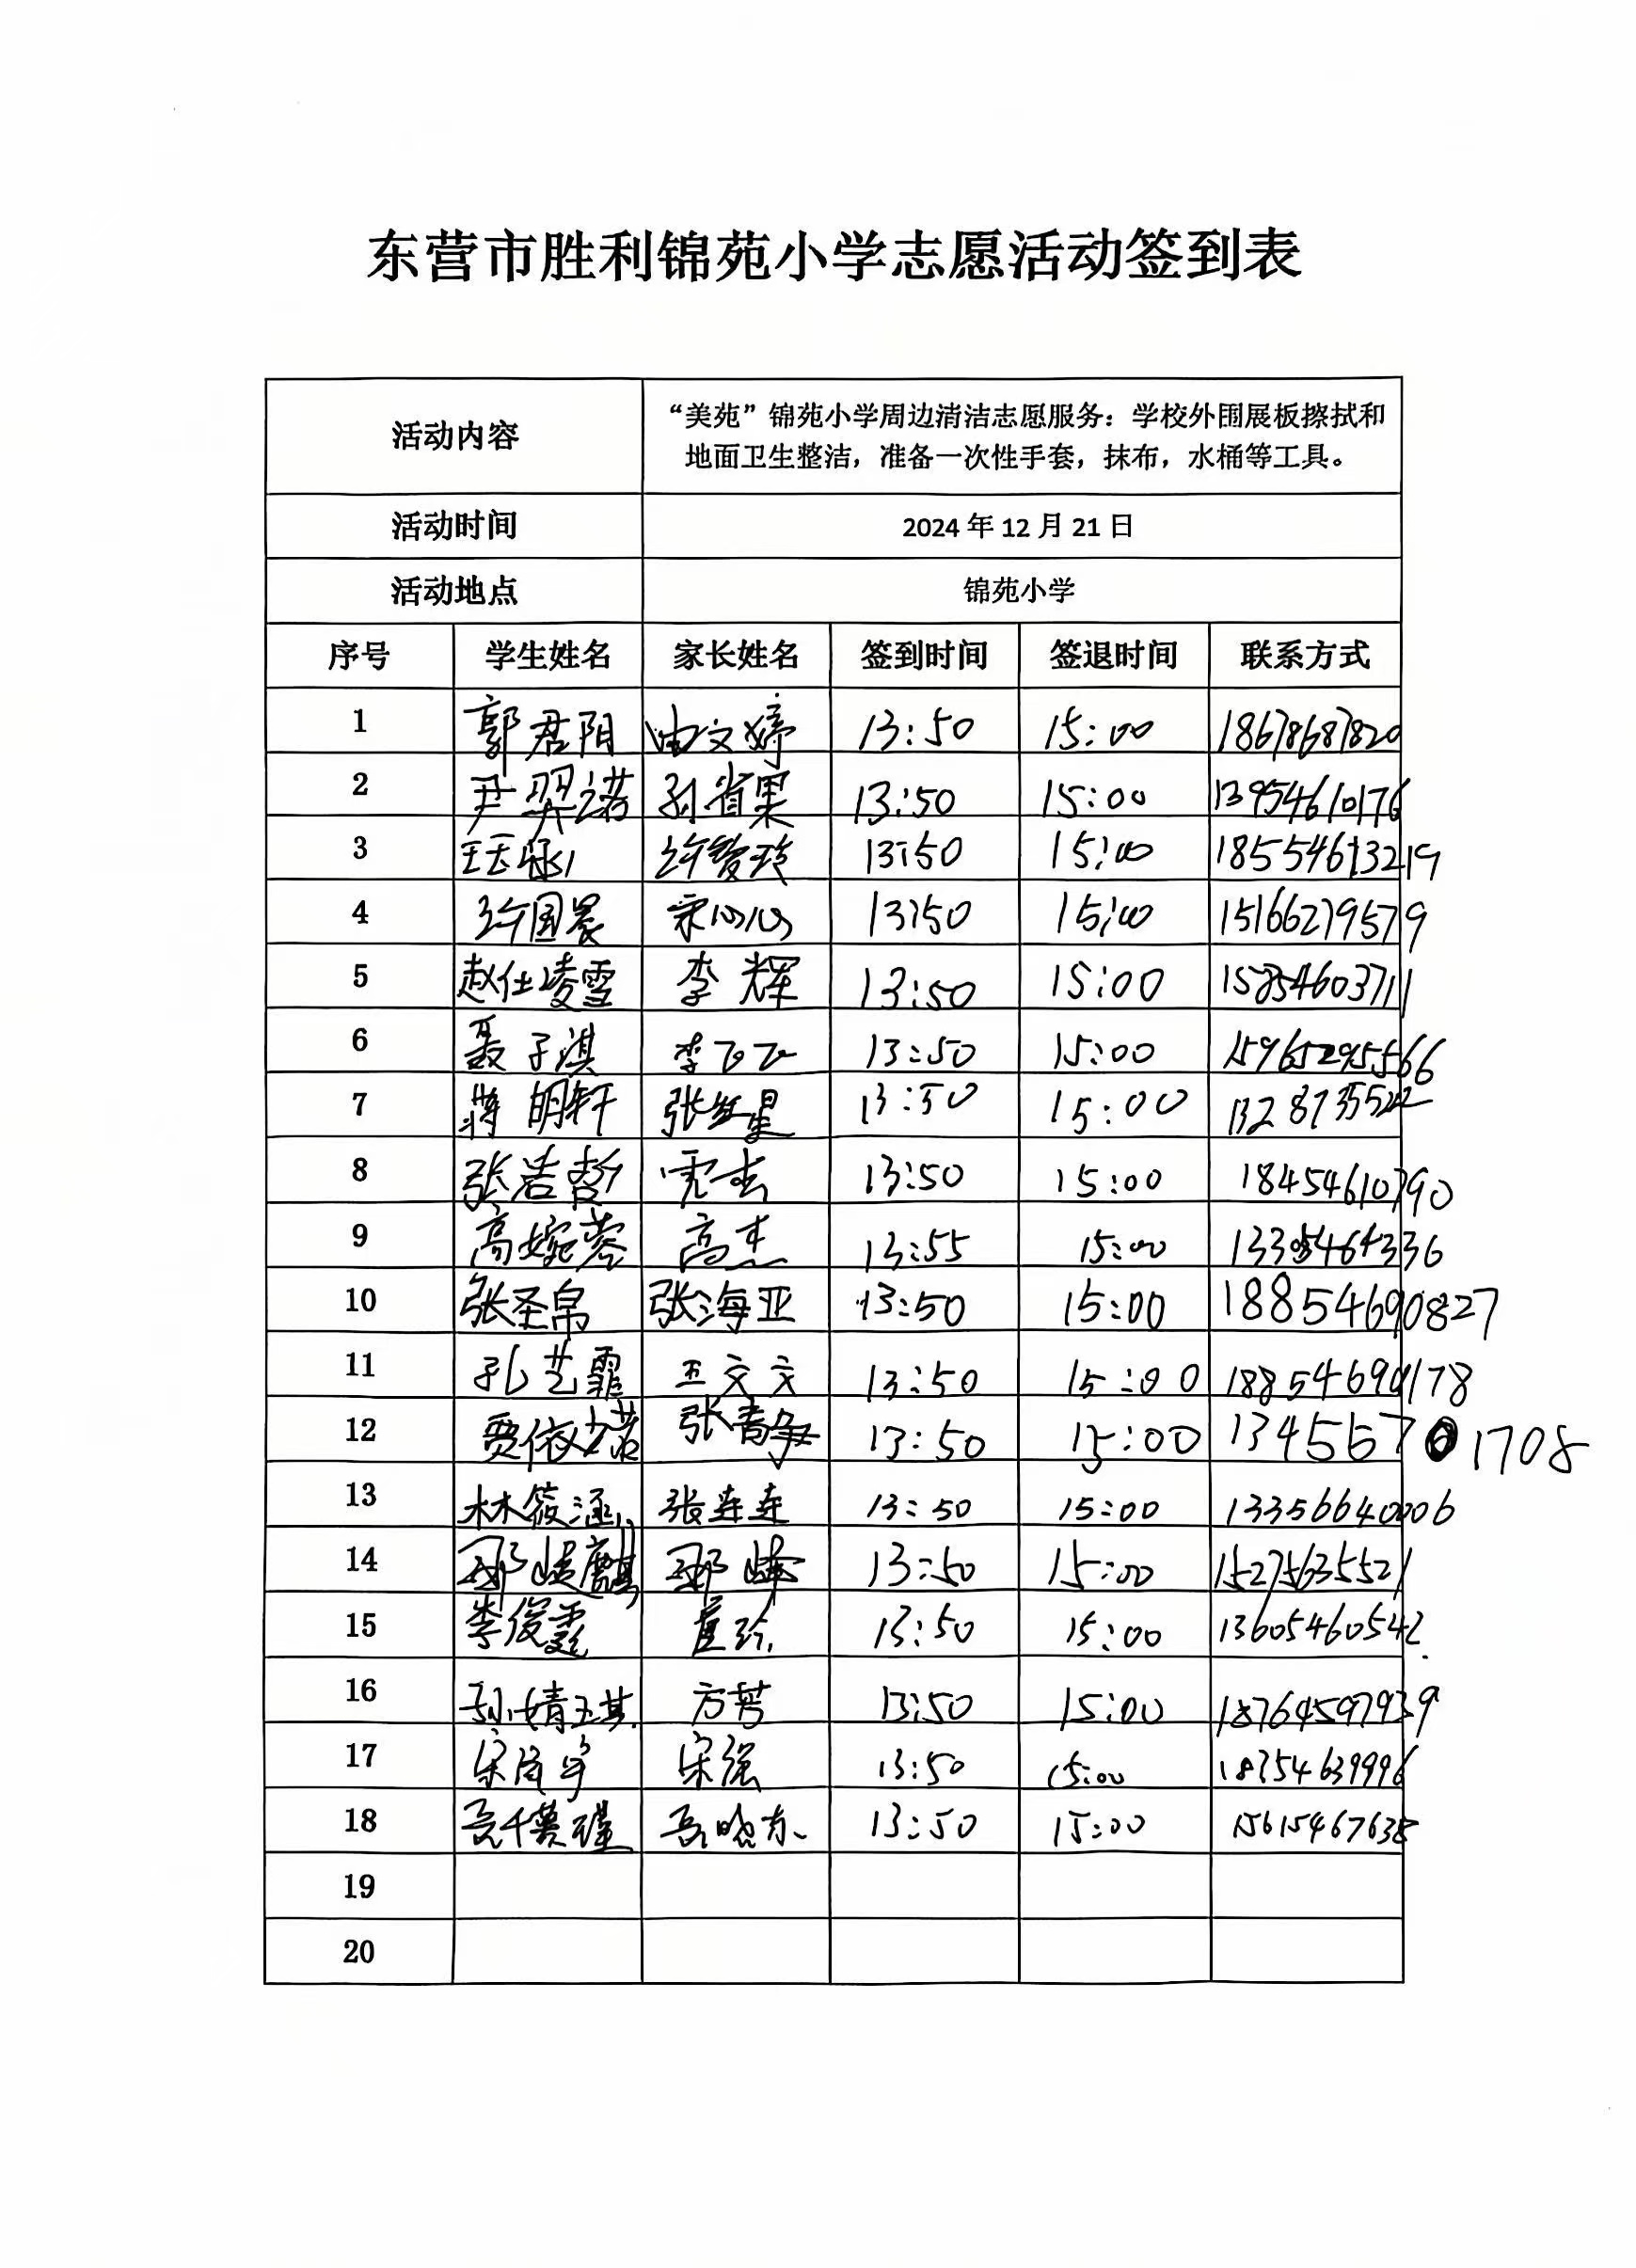 东营市胜利锦苑小学志愿活动签到表
活动内容 “美苑”锦苑小学周边清洁志愿服务：学校外围展板擦拭和
地面卫生整洁，准备一次性手套，抹布，水桶等工具。
活动时间 2024 年 12 月 21 日
活动地点 锦苑小学
序号 学生姓名 家长姓名 签到时间 签退时间 联系方式
1 郭君阳 由文婷 13:50 15:00 18678687820
2 尹羿诺 孙省果 13:50 15:00 13954610176
3 13:50 15:00 18554613219
4 许国晨 宋心心 13:50 15:00 15166279579
5 赵仕凌雪 李辉 13:50 15:00 15854603711
6 聂子淇 李飞飞 13:50 15:00 15965295566
7 蒋明轩 张红星 13:50 15:00
8 张浩哲 13:50 15:00 18454610790
9 高婉蓉 高杰 13:55 15:00
10 张圣帛 张海亚 13:50 15:00 18854690827
11 孔艺霏 王文文 13:50 15:00 18854690178
12 贾依诺 张青争 13:50 15:00 13455701708
13 林筱涵 张连连 13:50 15:00 13356640006
14 邵峻麒 邵峰 13:50 15:00 15275635521
15 李俊霆 崔玲 13:50 15:00 13605460542
16 孙婧琪 方芳 13:50 15:00 18764597939
17 宋雨宇 宋强 13:50 15:00 18754639996
18 高千惠瑾 高晓东 13:50 15:00 15615467635
19
20